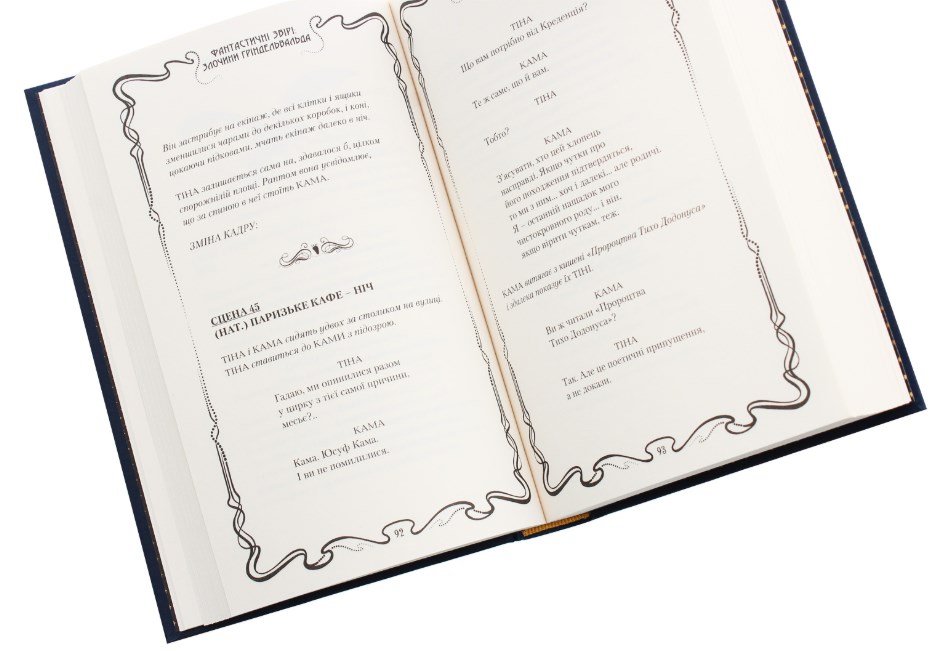 ФАНТАСТИЧНІ ЗВІРІ:
ЗЛОЧИНИ ҐРІНДЕЛЬВАЛЬДА
Він застрибує на екіпаж, де всі клітки і ящики
зменшилися чарами до декількох коробок, і коні,
цокаючи підковами, мчать екіпаж далеко в ніч.
ТІНА залишається сама на, здавалося б, цілком
сторожній площі. Раптом вона усвідомлює,
що за спиною в неї стоїть КАМА.
ЗМІНА КАДРУ:
СЦЕНА 45
(НАТ.) ПАРИЗЬКЕ КАФЕ – НІЧ
ТІНА і КАМА сидять удвох за столиком на вулиці.
ТІНА ставиться до КАМИ з підозрою.
ТІНА
Гадаю, ми опинилися разом
у цирку з тієї самої причини,
месьє?..
КАМА
Кама. Юсуф Кама.
І ви не помилилися.
92
ТІНА
Що вам потрібно від Креденція?
КАМА
Те ж саме, що й вам.
ТІНА
Тобто?
КАМА
З'ясувати, хто цей хлопець
насправді. Якщо чутки про
його походження підтвердяться,
то ми з ним... хоч і далекі... але родичі.
Я – останній нащадок мого
чистокровного роду... і він,
якщо вірити чуткам, теж.
КАМА витягає з кишені «Пророцтва Тихо Додонуса»
і здалека показує їх ТІНІ.
КАМА
Ви ж читали «Пророцтва
Тихо Додонуса»?
ТІНА
Так. Але це поетичні припущення,
а не докази.
93